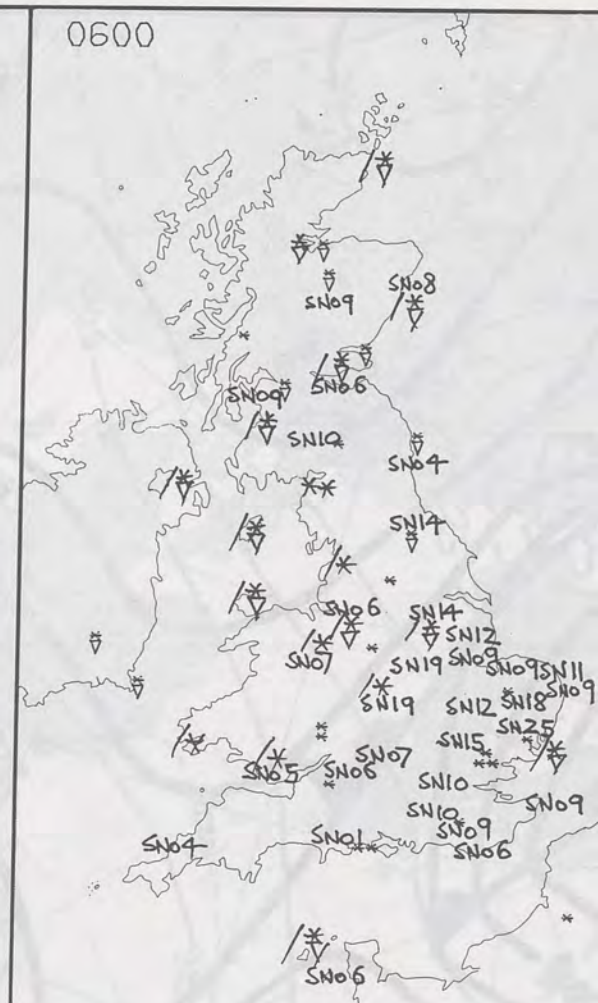 0600
SN08
SN09
SN06
SN09
SN10
SN04
SN14
SN06
SN14
SN12
SN07
SN19
SN09
SN09
SN11
SN09
SN19
SN12
SN18
SN25
SN15
SN07
SN05
SN06
SN10
SN09
SN10
SN09
SN04
SN01
SN06
SN06